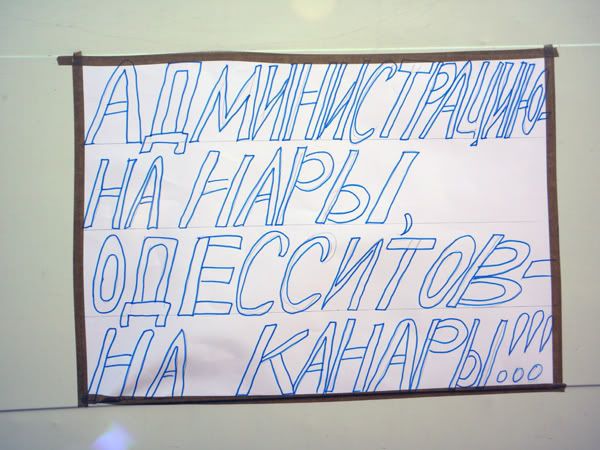 АДМИНИСТРАЦИЮ-
НА НАРЫ,
ОДЕССИТОВ-
НА КАНАРЫ!!!